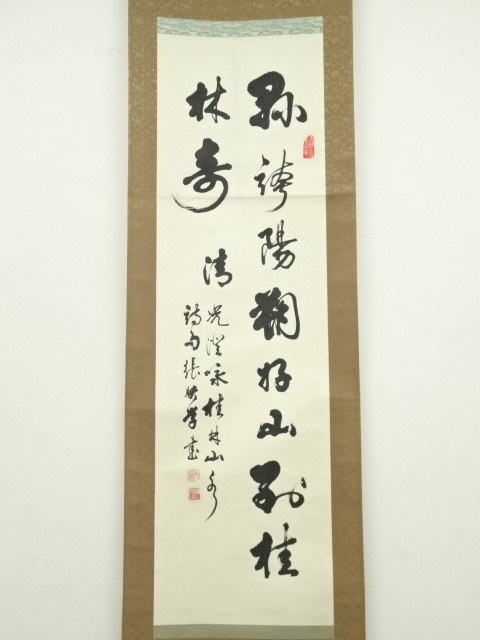 縣誇陽朔好山到桂
林奇
清 况澄咏桂林山水
詩句張學書